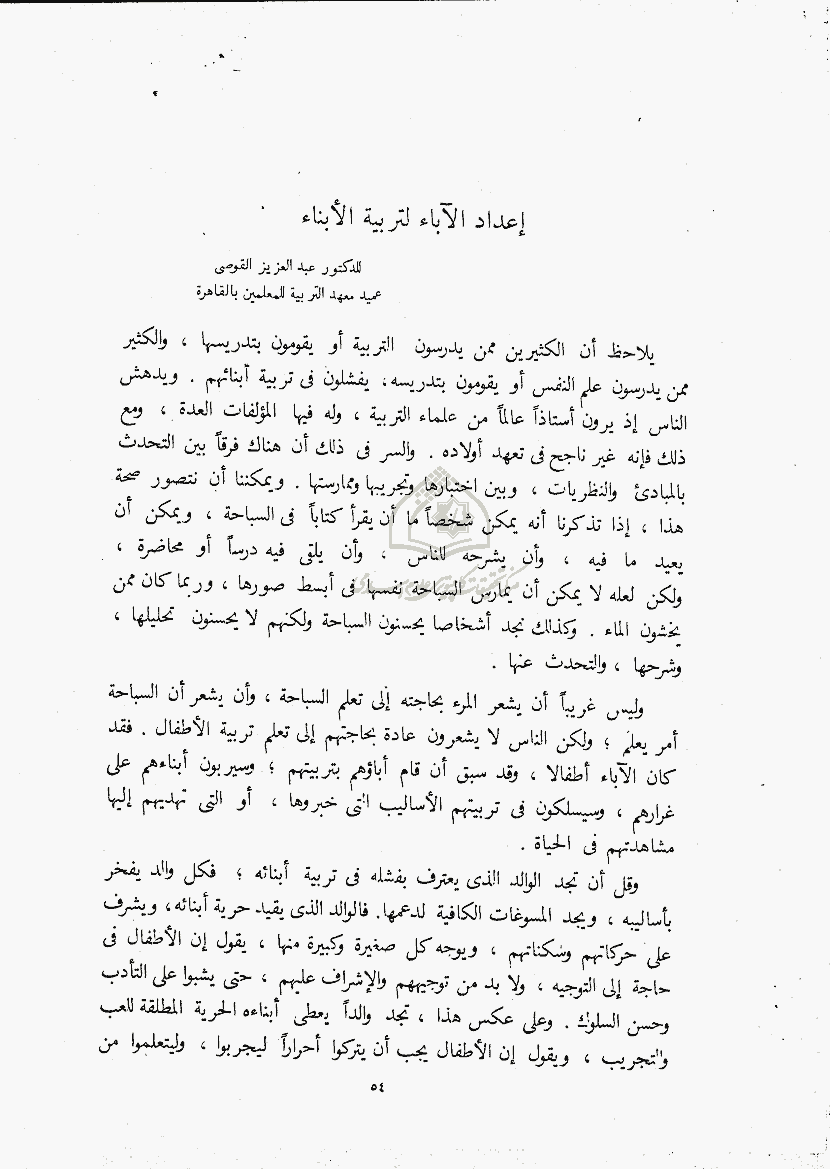 إعداد الآباء لتربية الأبناء
للدكتور عبد العزيز القوصى
عميد معهد التربية للمعلمين بالقاهرة
يلاحظ أن الكثيرين ممن يدرسون التربية أو يقومون بتدريسها ، والكثير
ممن يدرسون علم النفس أو يقومون بتدريسه، يفشلون فى تربية أبنائهم . ويدهش
الناس إذ يرون أستاذاً عالماً من علماء التربية ، وله فيها المؤلفات العدة ، ومع
ذلك فإنه غير ناجح فى تعهد أولاده . والسر فى ذلك أن هناك فرقاً بين التحدث
بالمبادئ والنظريات ، وبين اختبارها وتجريبها وممارستها . ويمكننا أن نتصور صحة
هذا ، إذا تذكرنا أنه يمكن شخصاً ما أن يقرأ كتاباً فى السباحة ، ويمكن أن
يعيد ما فيه ، وأن يشرحه للناس ، وأن يلقى فيه درساً أو محاضرة ،
ولكن لعله لا يمكن أن يمارس السباحة نفسها فى أبسط صورها ، وربما كان ممن
يخشون الماء . وكذلك تجد أشخاصا يحسنون السباحة ولكنهم لا يحسنون تحليلها ،
وشرحها ، والتحدث عنها .
وليس غريباً أن يشعر المرء بحاجته إلى تعلم السباحة ، وأن يشعر أن السباحة
أمر يعلم ؛ ولكن الناس لا يشعرون عادة بحاجتهم إلى تعلم تربية الأطفال . فقد
كان الآباء أطفالا ، وقد سبق أن قام أباؤهم بتربيتهم ؛ وسيربون أبناءهم على
غرارهم ، وسيسلكون فى تربيتهم الأساليب التى خبروها ، أو التى تهديهم إليها
مشاهدتهم فى الحياة .
وقل أن تجد الوالد الذى يعترف بفشله فى تربية أبنائه ؛ فكل والد يفخر
بأساليبه ، ويجد المسوغات الكافية لدعمها. فالوالد الذى يقيد حرية أبنائه، ويشرف
على حركاتهم وسكناتهم ، ويوجه كل صغيرة وكبيرة منها ، يقول إن الأطفال فى
حاجة إلى التوجيه ، ولا بد من توجيههم والإشراف عليهم ، حتى يشبوا على التأدب
وحسن السلوك . وعلى عكس هذا ، تجد والداً يعطى أبناءه الحرية المطلقة للعب
والتجريب ، ويقول إن الأطفال يجب أن يتركوا أحراراً ليجربوا ، وليتعلموا من
٥٤